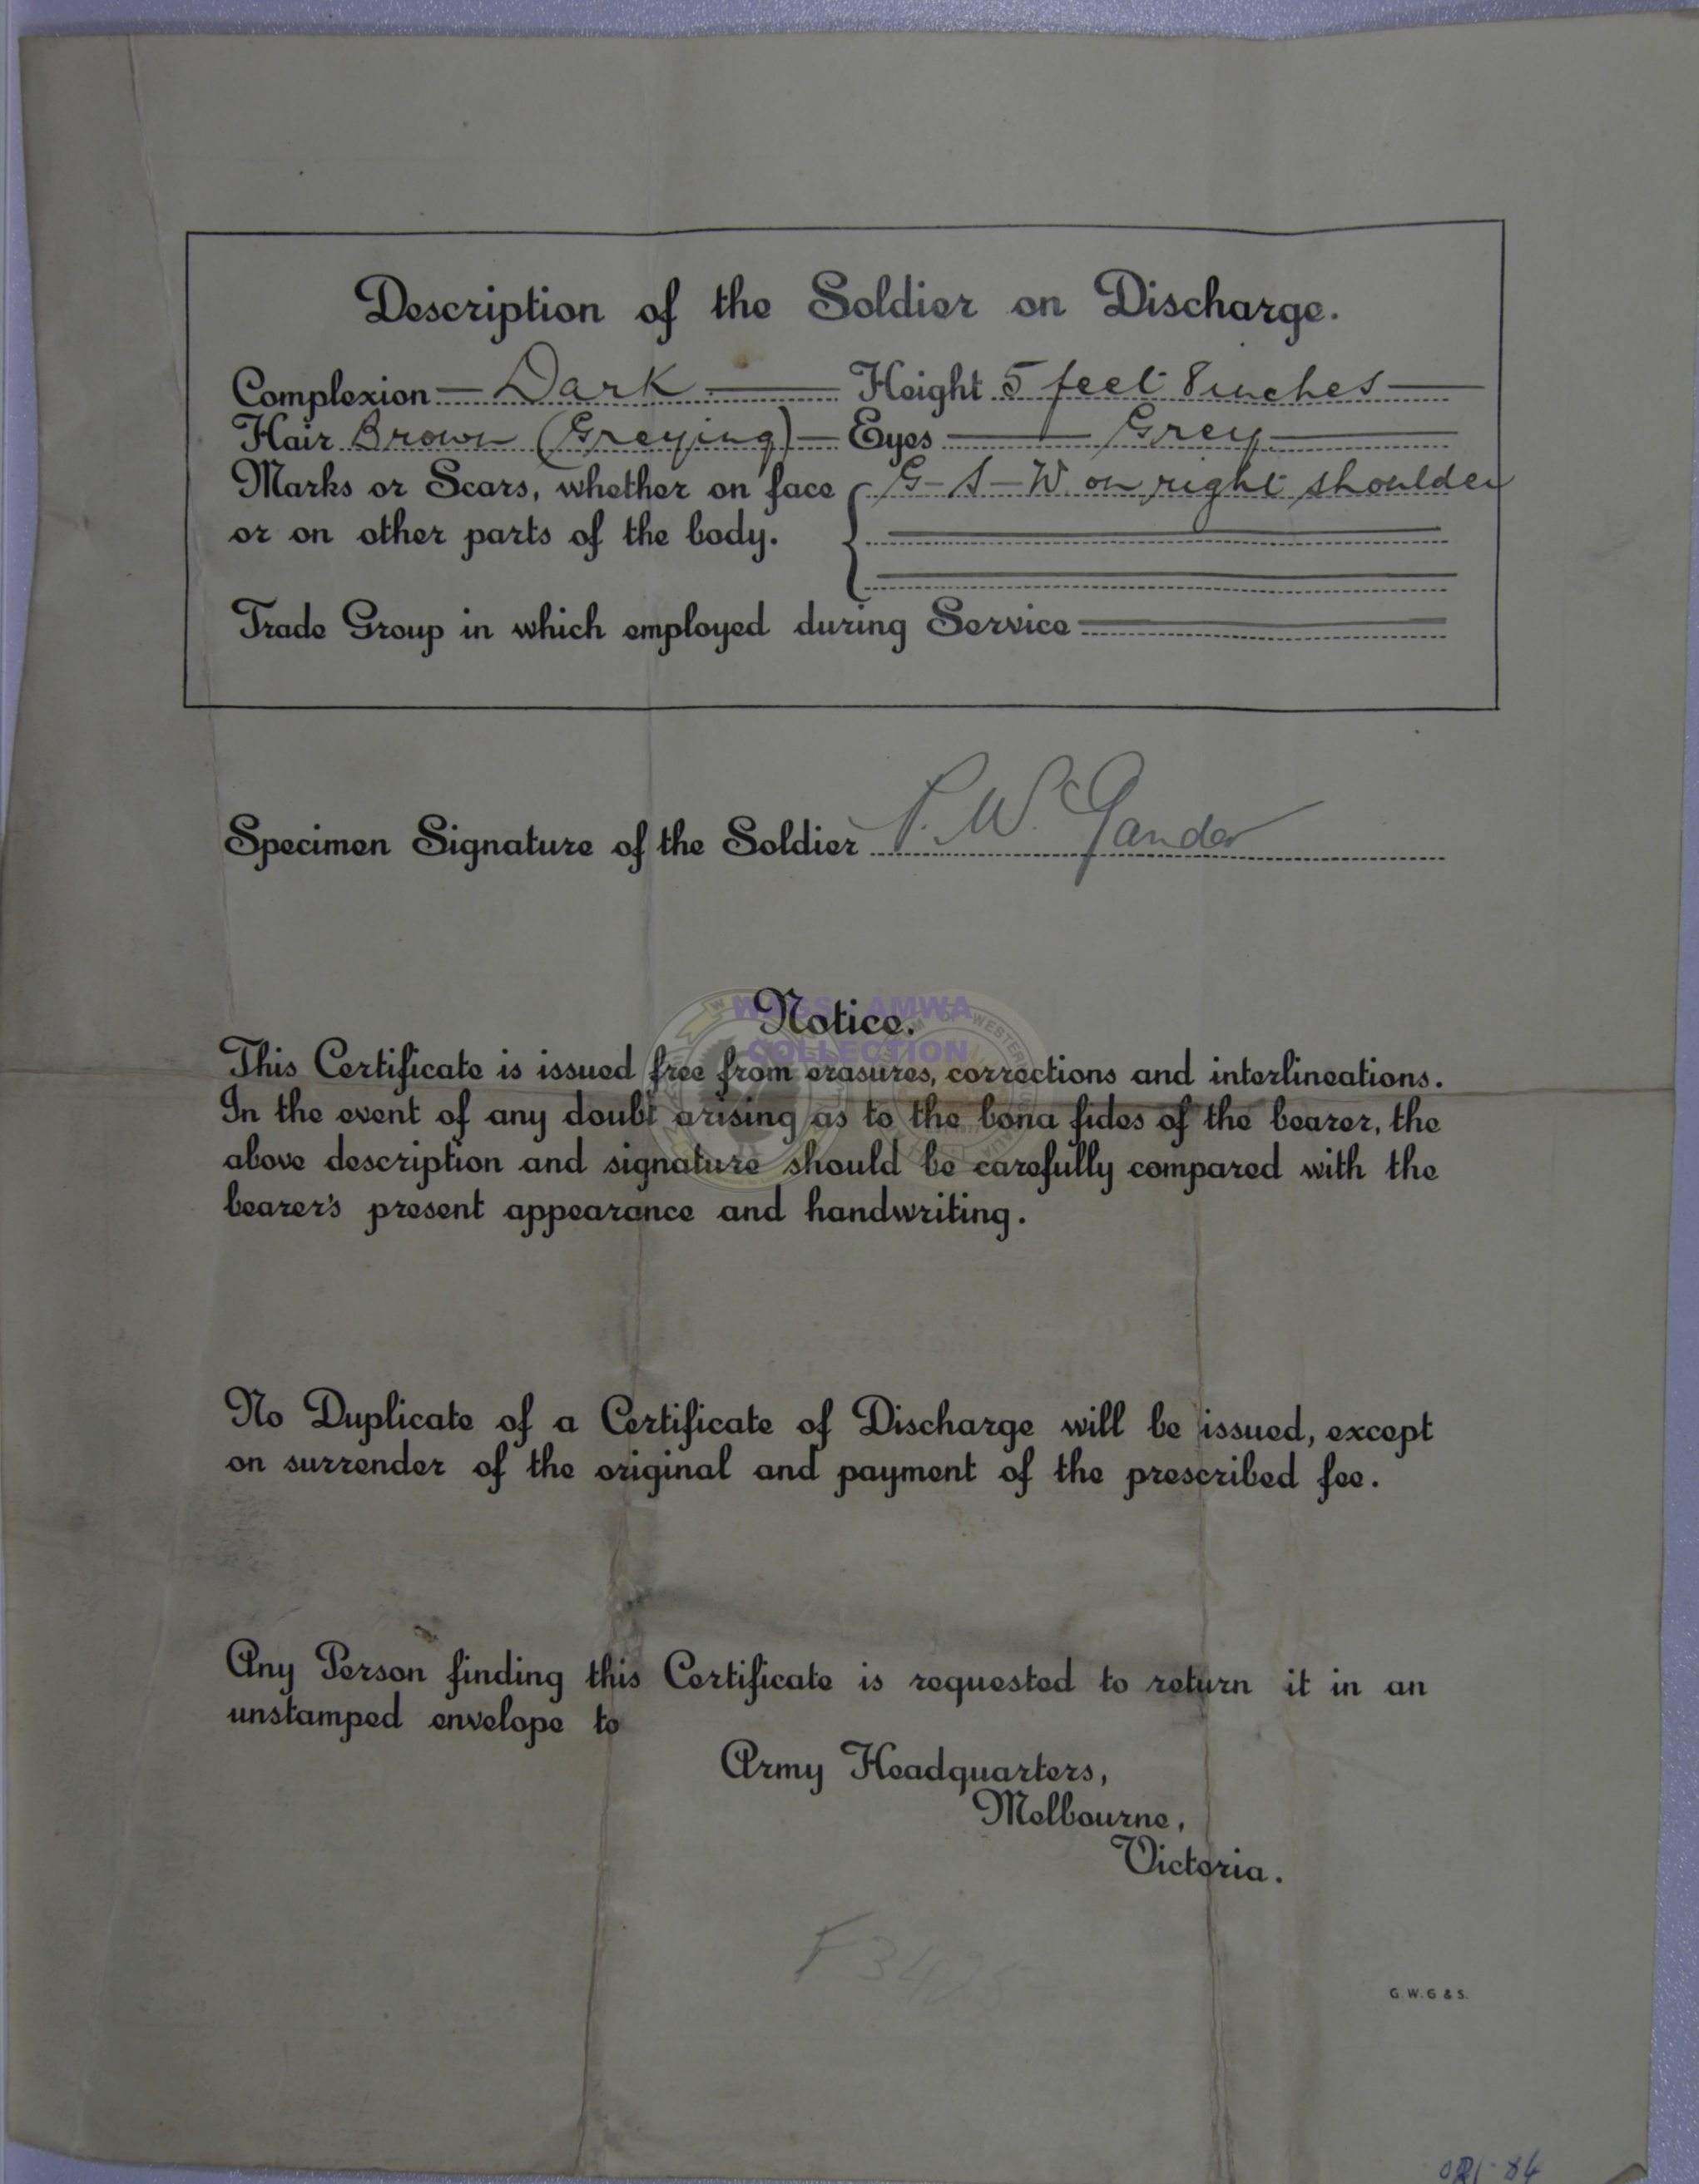 Description of the Soldier on Discharge.
Complexion Dark Height 5 feet 8 inches
Hair Brown (Greying) Eyes Grey
Marks or Scars, whether on face G-S-W. on right shoulder
or on other parts of the body.
Trade Group in which employed during Service
Specimen Signature of the Soldier P. W. Gander
WAGS AMWA
COLLECTION
Notice.
This Certificate is issued free from erasures, corrections and interlineations.
In the event of any doubt arising as to the bona fides of the bearer, the
above description and signature should be carefully compared with the
bearer's present appearance and handwriting.
No Duplicate of a Certificate of Discharge will be issued, except
on surrender of the original and payment of the prescribed fee.
Any Person finding this Certificate is requested to return it in an
unstamped envelope to
Army Headquarters,
Melbourne,
Victoria.
F3475
G.W.G & S.